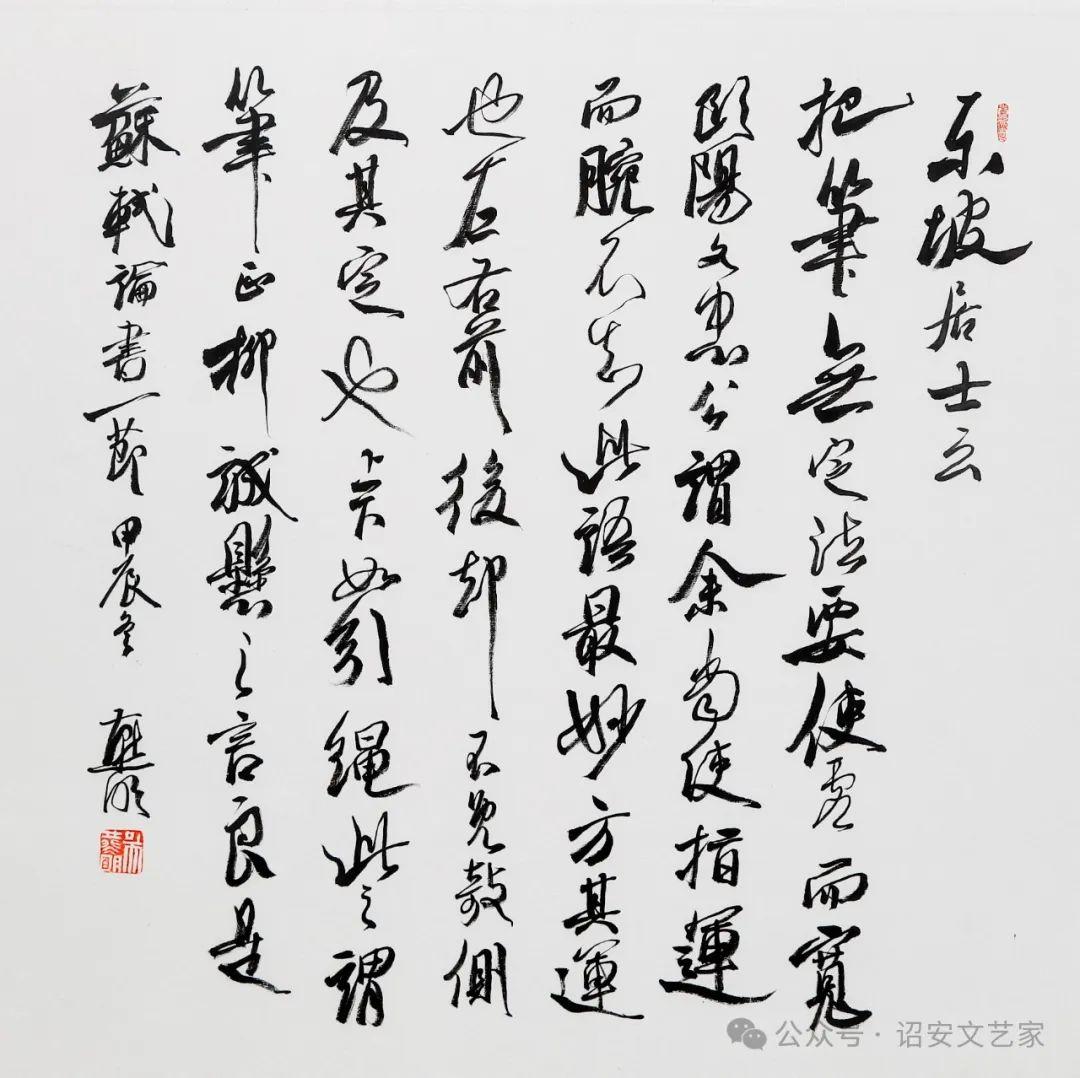 东坡居士云
把筆無定法要使虛而寬
歐陽文忠公謂余當使指運
而腕不知此語最妙方其運
也左右前後却不免欹側
及其定也上下如引繩此之謂
筆正柳誠懸之言良是
蘇軾論書一節 甲辰冬
公众号 · 诏安文艺家